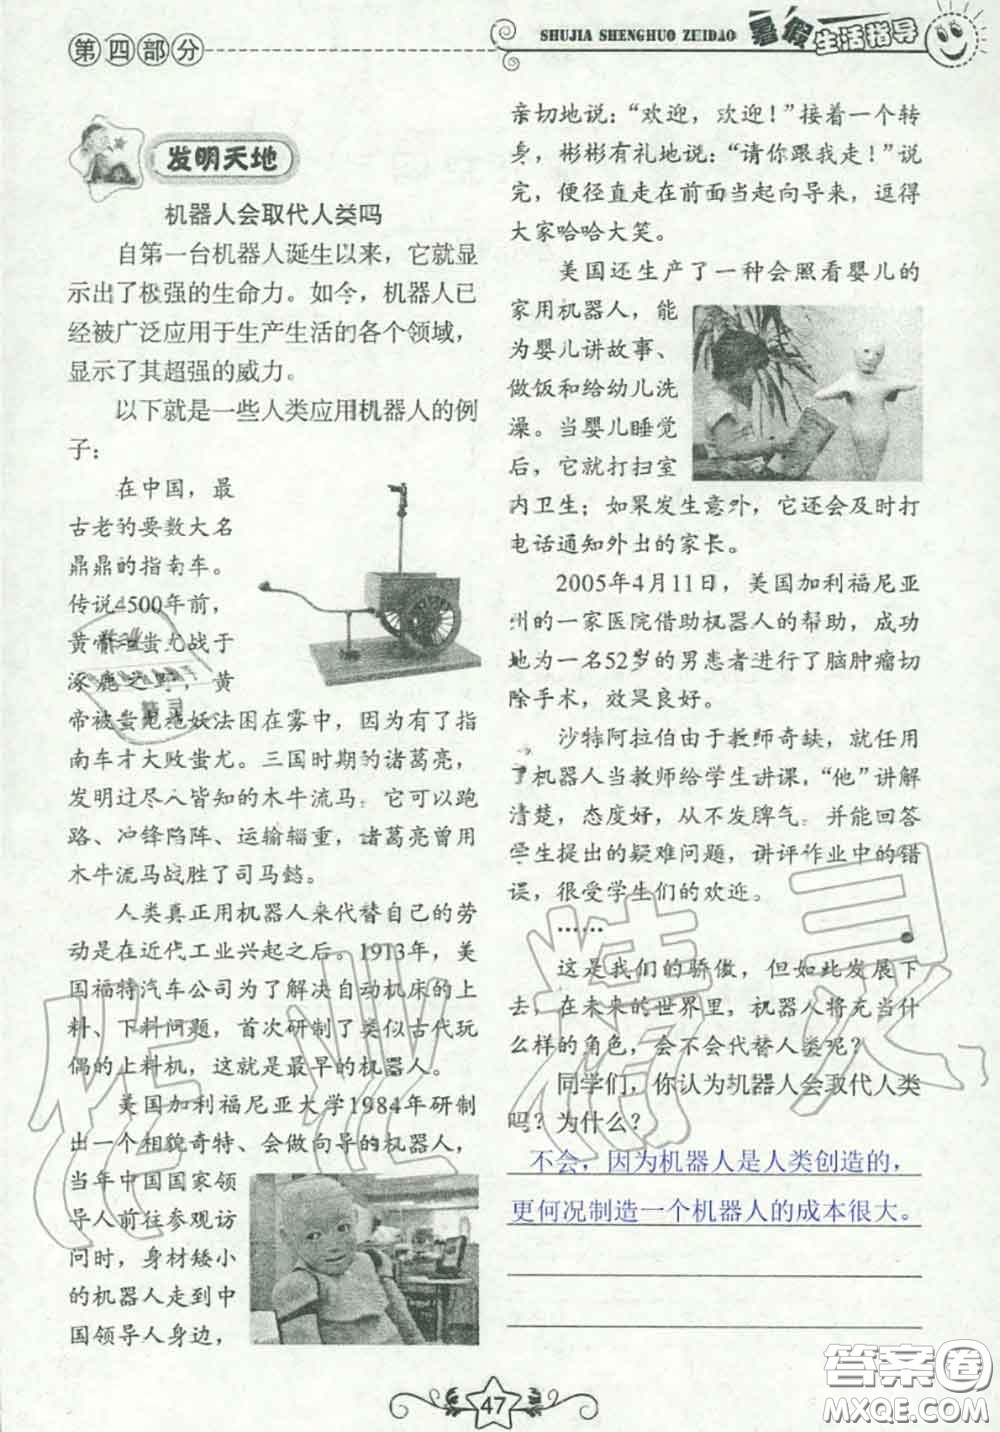 第四部分
SHUJIA SHENGHUO ZHIDAO
暑假生活指导
发明天地
机器人会取代人类吗
自第一台机器人诞生以来，它就显
示出了极强的生命力。如今，机器人已
经被广泛应用于生产生活的各个领域，
显示了其超强的威力。
以下就是一些人类应用机器人的例
子：
在中国，最
古老的要数大名
鼎鼎的指南车。
传说4500年前，
黄帝和蚩尤战于
涿鹿之野，黄
帝被蚩尤施妖法困在雾中，因为有了指
南车才大败蚩尤。三国时期的诸葛亮，
发明过尽人皆知的木牛流马：它可以跑
路、冲锋陷阵、运输辎重，诸葛亮曾用
木牛流马战胜了司马懿。
人类真正用机器人来代替自己的劳
动是在近代工业兴起之后。1913年，美
国福特汽车公司为了解决自动机床的上
料、下料问题，首次研制了类似古代玩
偶的上料机，这就是最早的机器人。
美国加利福尼亚大学1984年研制
出一个相貌奇特、会做向导的机器人，
当年中国国家领
导人前往参观访
问时，身材矮小
的机器人走到中
国领导人身边，
亲切地说：“欢迎，欢迎！”接着一个转
身，彬彬有礼地说：“请你跟我走！”说
完，便径直走在前面当起向导来，逗得
大家哈哈大笑。
美国还生产了一种会照看婴儿的
家用机器人，能
为婴儿讲故事、
做饭和给幼儿洗
澡。当婴儿睡觉
后，它就打扫室
内卫生；如果发生意外，它还会及时打
电话通知外出的家长。
2005年4月11日，美国加利福尼亚
州的一家医院借助机器人的帮助，成功
地为一名52岁的男患者进行了脑肿瘤切
除手术，效果良好。
沙特阿拉伯由于教师奇缺，就任用
了机器人当教师给学生讲课，“他”讲解
清楚，态度好，从不发脾气，并能回答
学生提出的疑难问题，讲评作业中的错
误，很受学生们的欢迎。
……
这是我们的骄傲，但如此发展下
去，在未来的世界里，机器人将充当什
么样的角色，会不会代替人类呢？
同学们，你认为机器人会取代人类
吗？为什么？
不会，因为机器人是人类创造的，
更何况制造一个机器人的成本很大。
47
作业精灵
答案圈
MXQE.COM